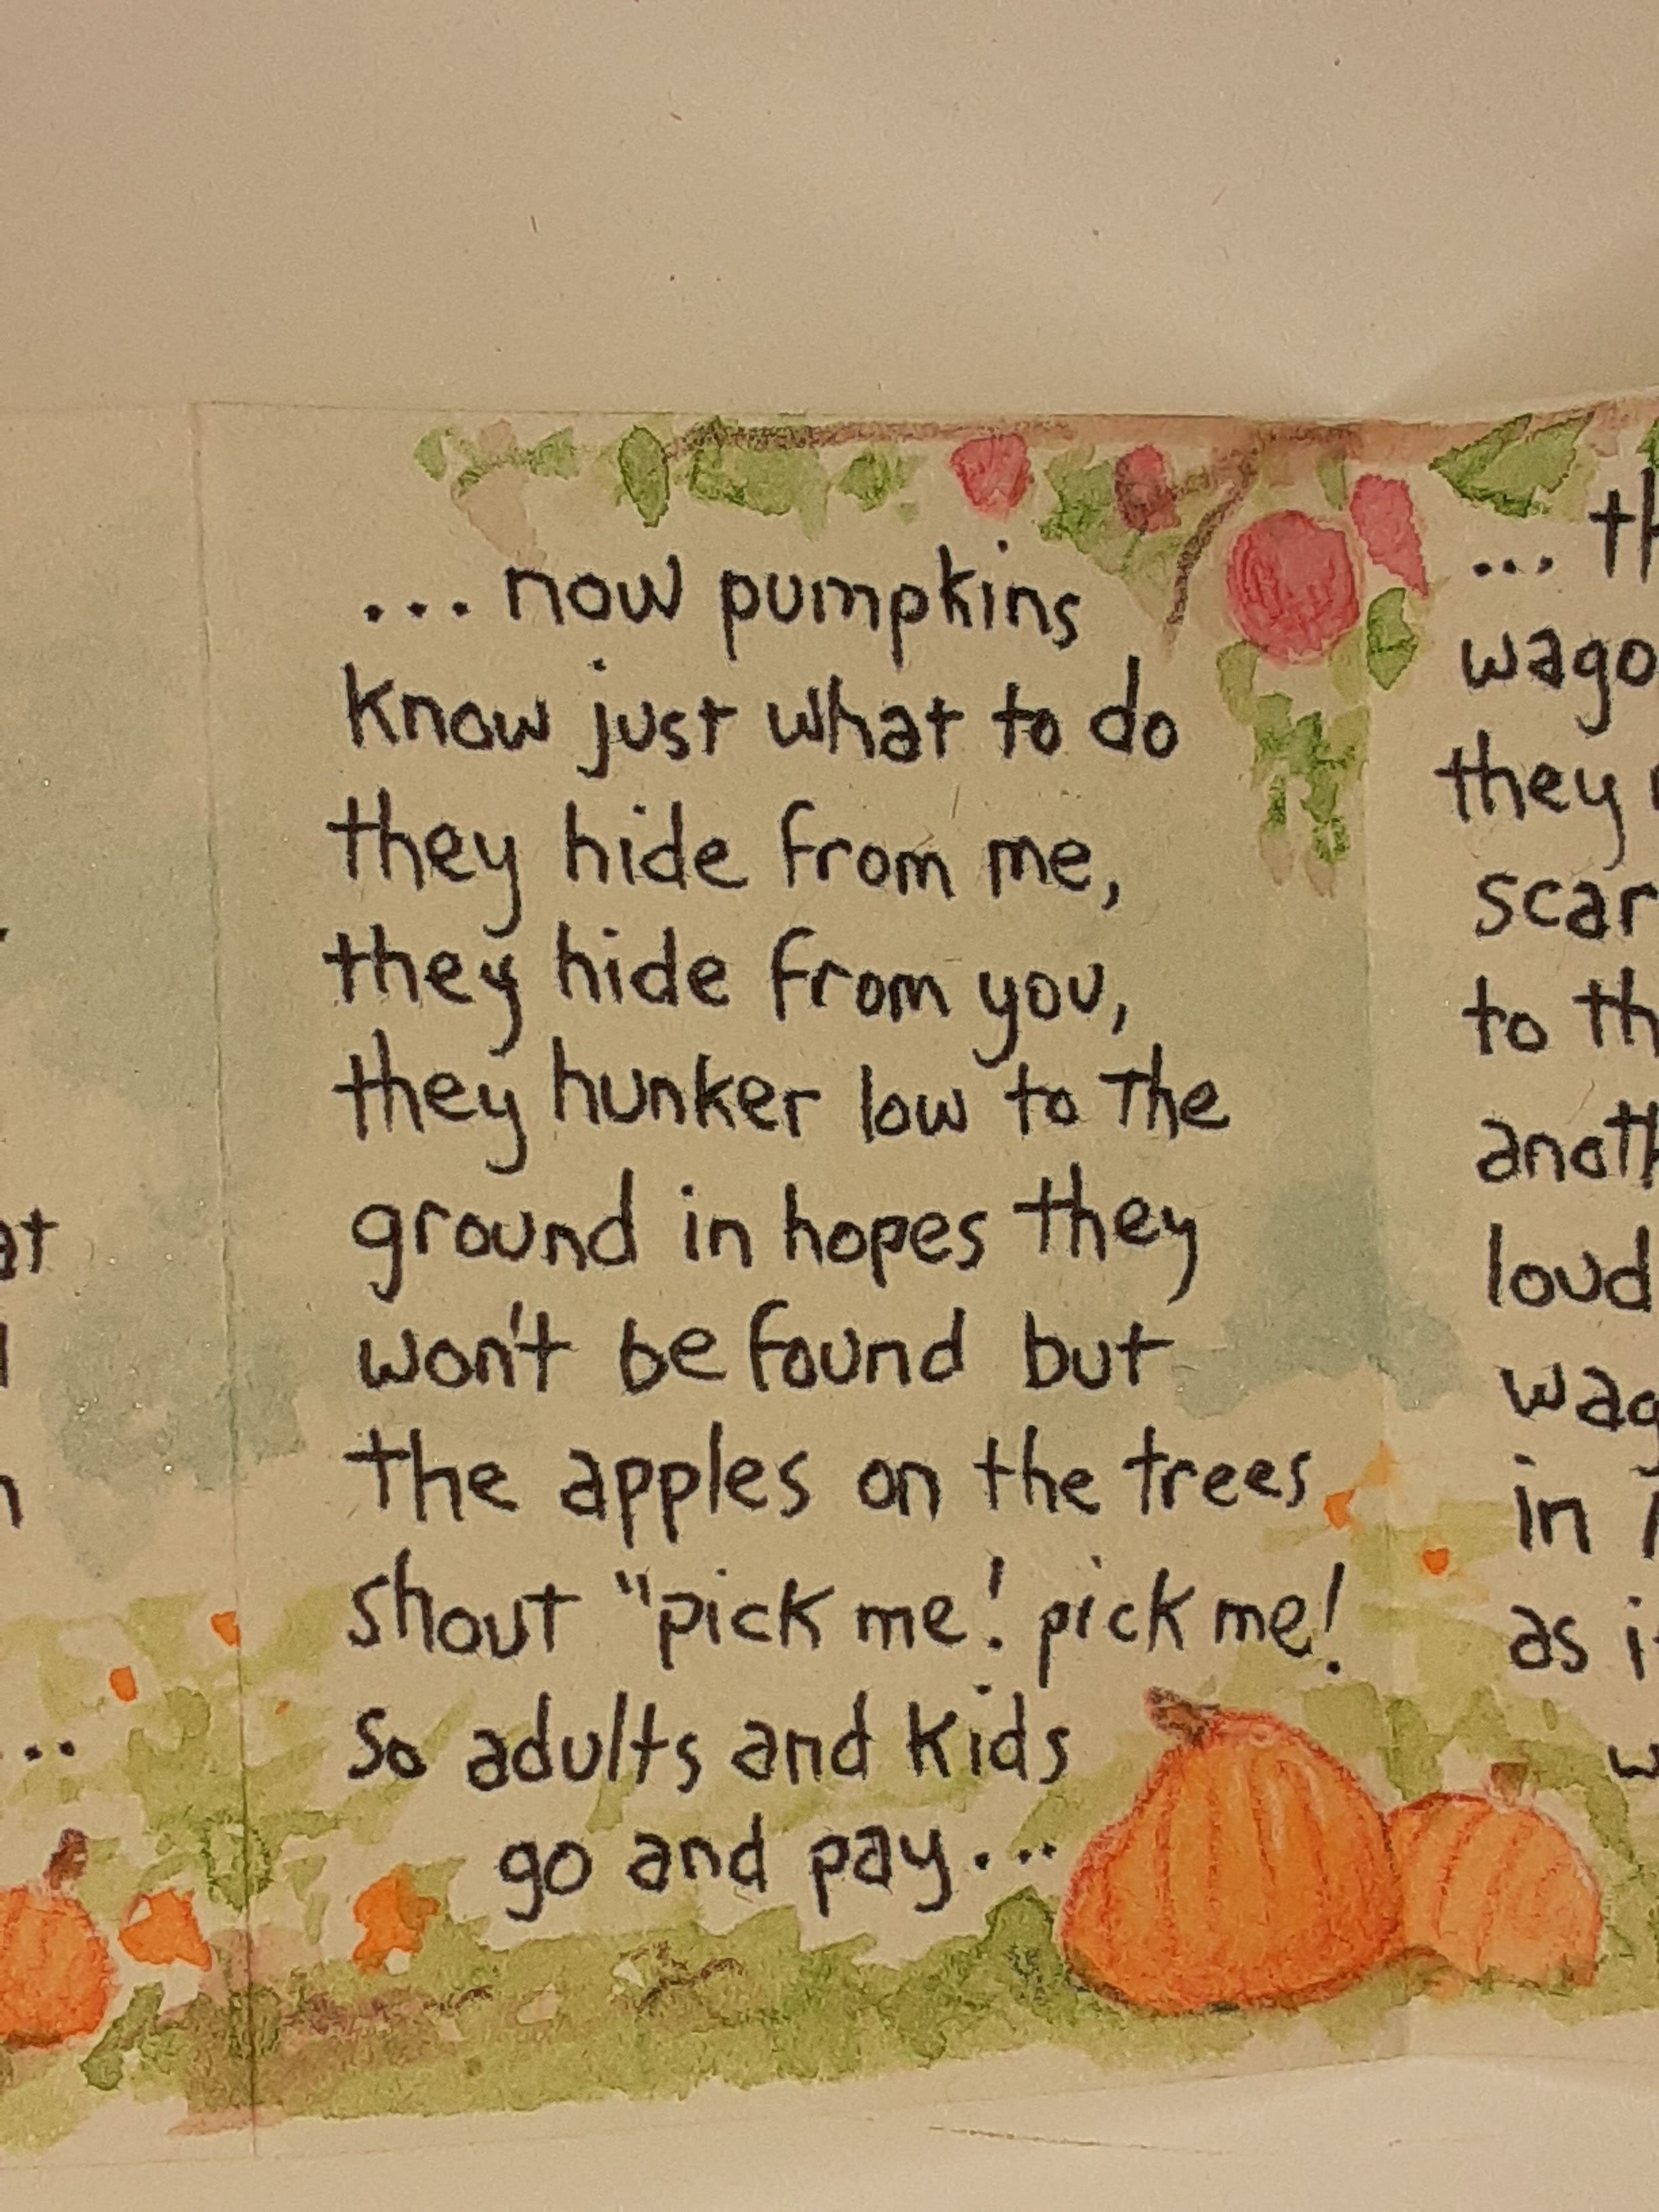 ... now pumpkins
know just what to do
they hide from me,
they hide from you,
they hunker low to the
ground in hopes they
won't be found but
the apples on the trees
shout "pick me! pick me!
So adults and kids
go and pay...
...
wago
they
scar
to th
anoth
loud
wag
in
as